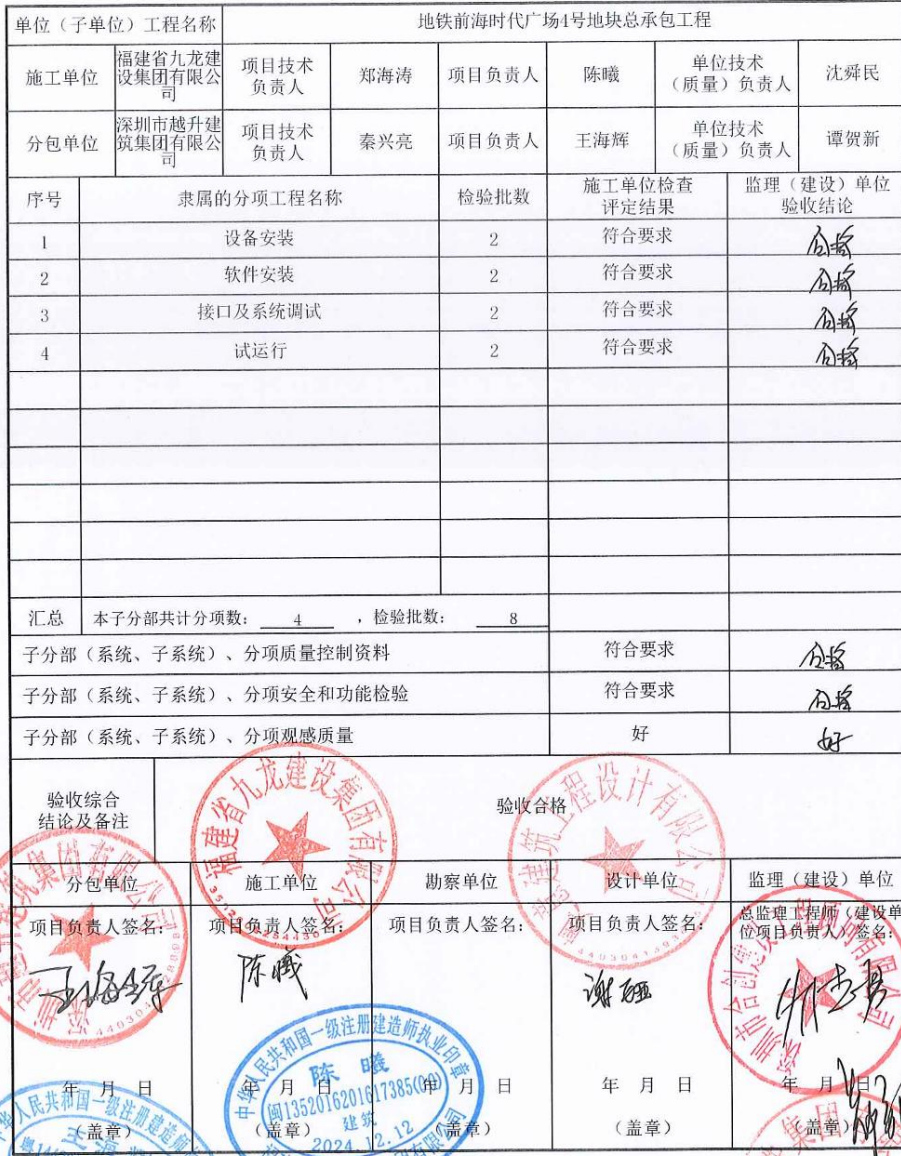 单位（子单位）工程名称 地铁前海时代广场4号地块总承包工程
施工单位 福建省九龙建设集团有限公司 项目技术负责人 郑海涛 项目负责人 陈曦 单位技术（质量）负责人 沈舜民
分包单位 深圳市越升建筑集团有限公司 项目技术负责人 秦兴亮 项目负责人 王海辉 单位技术（质量）负责人 谭贺新
序号 隶属的分项工程名称 检验批数 施工单位检查评定结果 监理（建设）单位验收结论
1 设备安装 2 符合要求 合格
2 软件安装 2 符合要求 合格
3 接口及系统调试 2 符合要求 合格
4 试运行 2 符合要求 合格
汇总 本子分部共计分项数： 4 ，检验批数： 8
子分部（系统、子系统）、分项质量控制资料 符合要求 合格
子分部（系统、子系统）、分项安全和功能检验 符合要求 合格
子分部（系统、子系统）、分项观感质量 好 好
验收综合结论及备注 验收合格
福建省九龙建设集团有限公司
建筑工程设计有限公司
分包单位 施工单位 勘察单位 设计单位 监理（建设）单位
项目负责人签名： 项目负责人签名： 项目负责人签名： 项目负责人签名： 总监理工程师（建设单位项目负责人）签名：
王海辉 陈曦
年 月 日 年 月 日 年 月 日 年 月 日 年 月 日
（盖章） （盖章） （盖章） （盖章） （盖章）
中华人民共和国一级注册建造师执业印章
陈 曦
闽1352016201617385(00)
建筑
2024.12.12